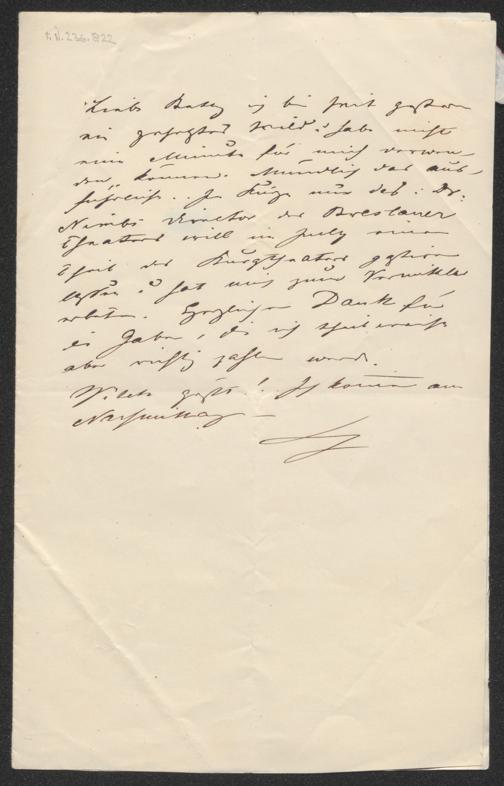 I. N. 236.822
Liebe Betty ich bin seit gestern
ein gehetztes Wild u habe nicht
eine Minute für mich verwen-
den können. Mündlich das aus-
führlich. In Kürze nur das: Dr.
Director des Breslauer
Theaters will im July einen
Theil des Burgtheaters gastiren
lassen u hat mich zum Vermittler
erbeten. Herzlichen Dank für
die Gabe, die ich theilweise
aber richtig zahlen werde.
gegrüßt! Ich komme am
Nachmittag –